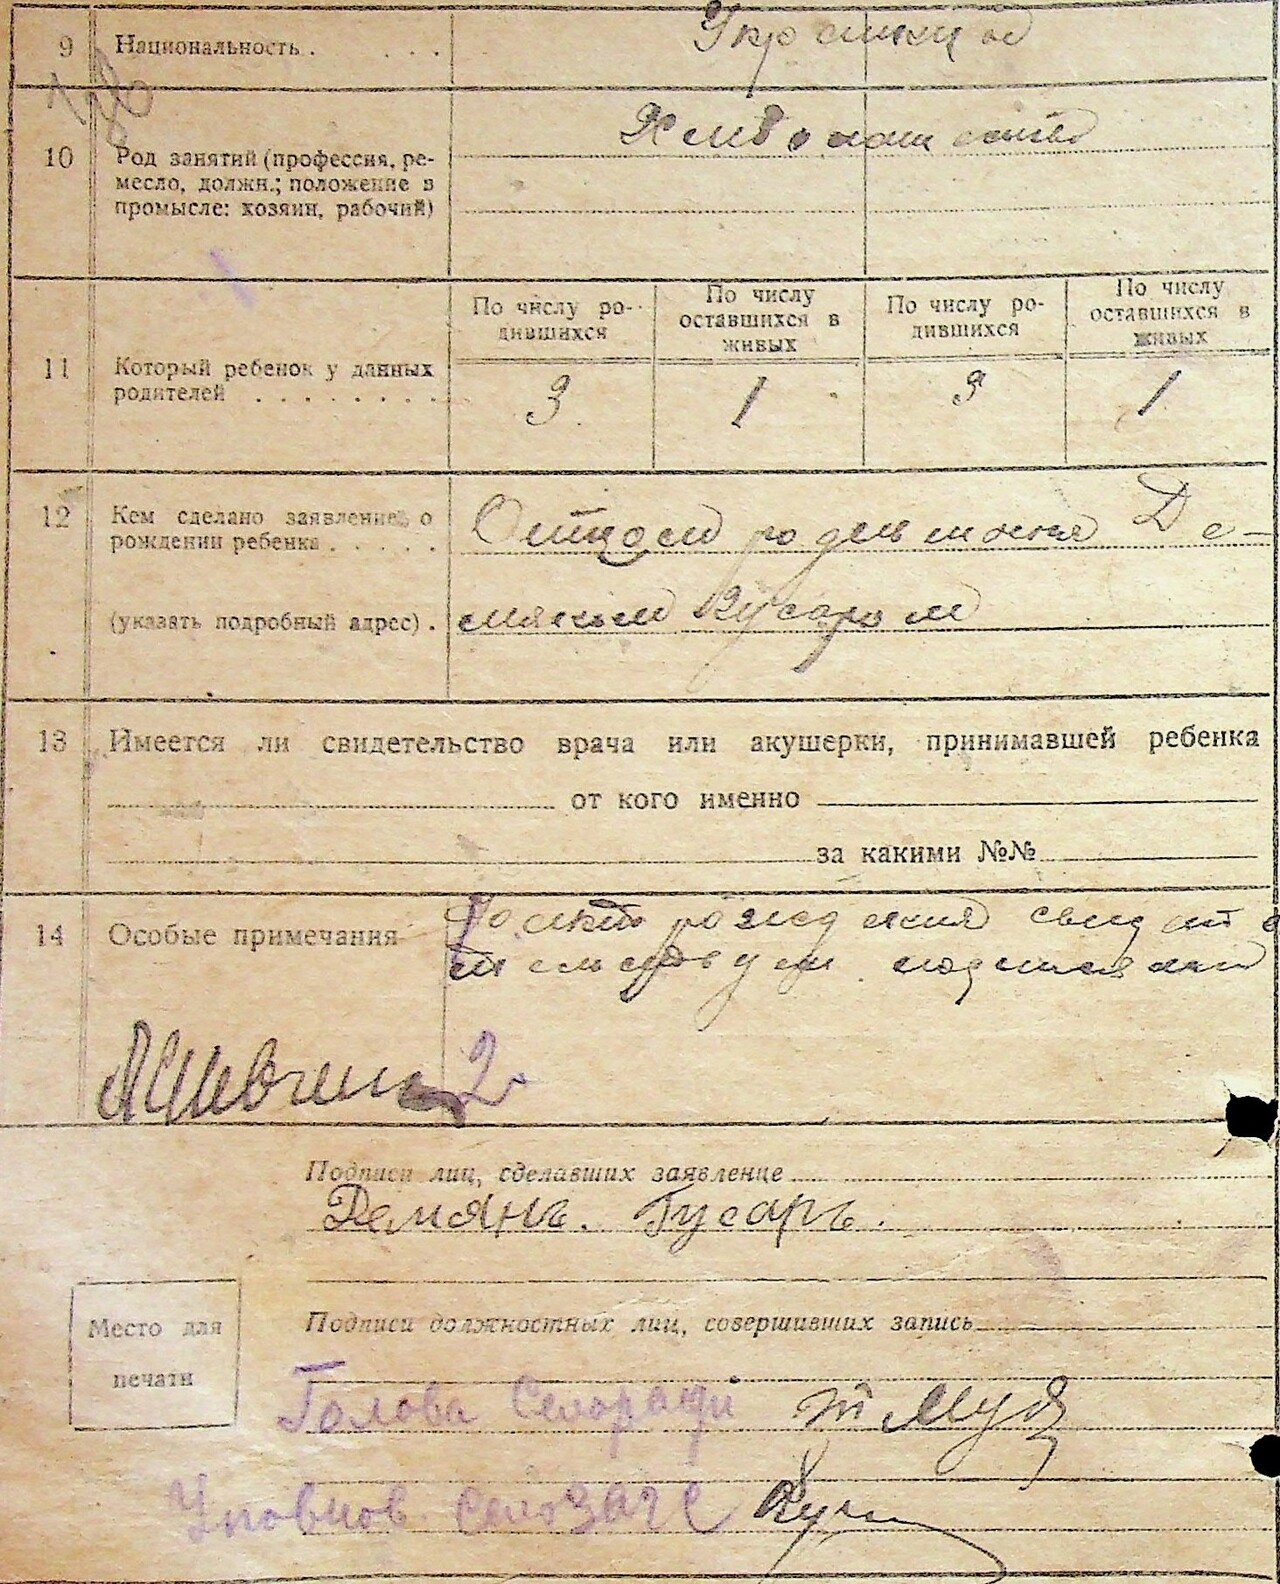 9 Национальность . . . . Украинцы
10 Род занятий (профессия, ре-
месло, должн.; положение в
промысле: хозяин, рабочий)
Хлебопашество
По числу ро-
дившихся
По числу
оставшихся в
живых
По числу ро-
дившихся
По числу
оставшихся в
живых
11 Который ребенок у данных
родителей . . . . . . . .
3 1 3 1
12 Кем сделано заявление о
рождении ребенка . . . . .
(указать подробный адрес) .
Отцом Де-
мяном Гусаром
13 Имеется ли свидетельство врача или акушерки, принимавшей ребенка
от кого именно
за какими №№
14 Особые примечания
рождения свидете
тельствует
2
Подписи лиц, сделавших заявление
Демянъ. Гусаръ.
Место для
печати
Подписи должностных лиц, совершивших запись
Голова Селоради
Уповнов. СелоЗАГС